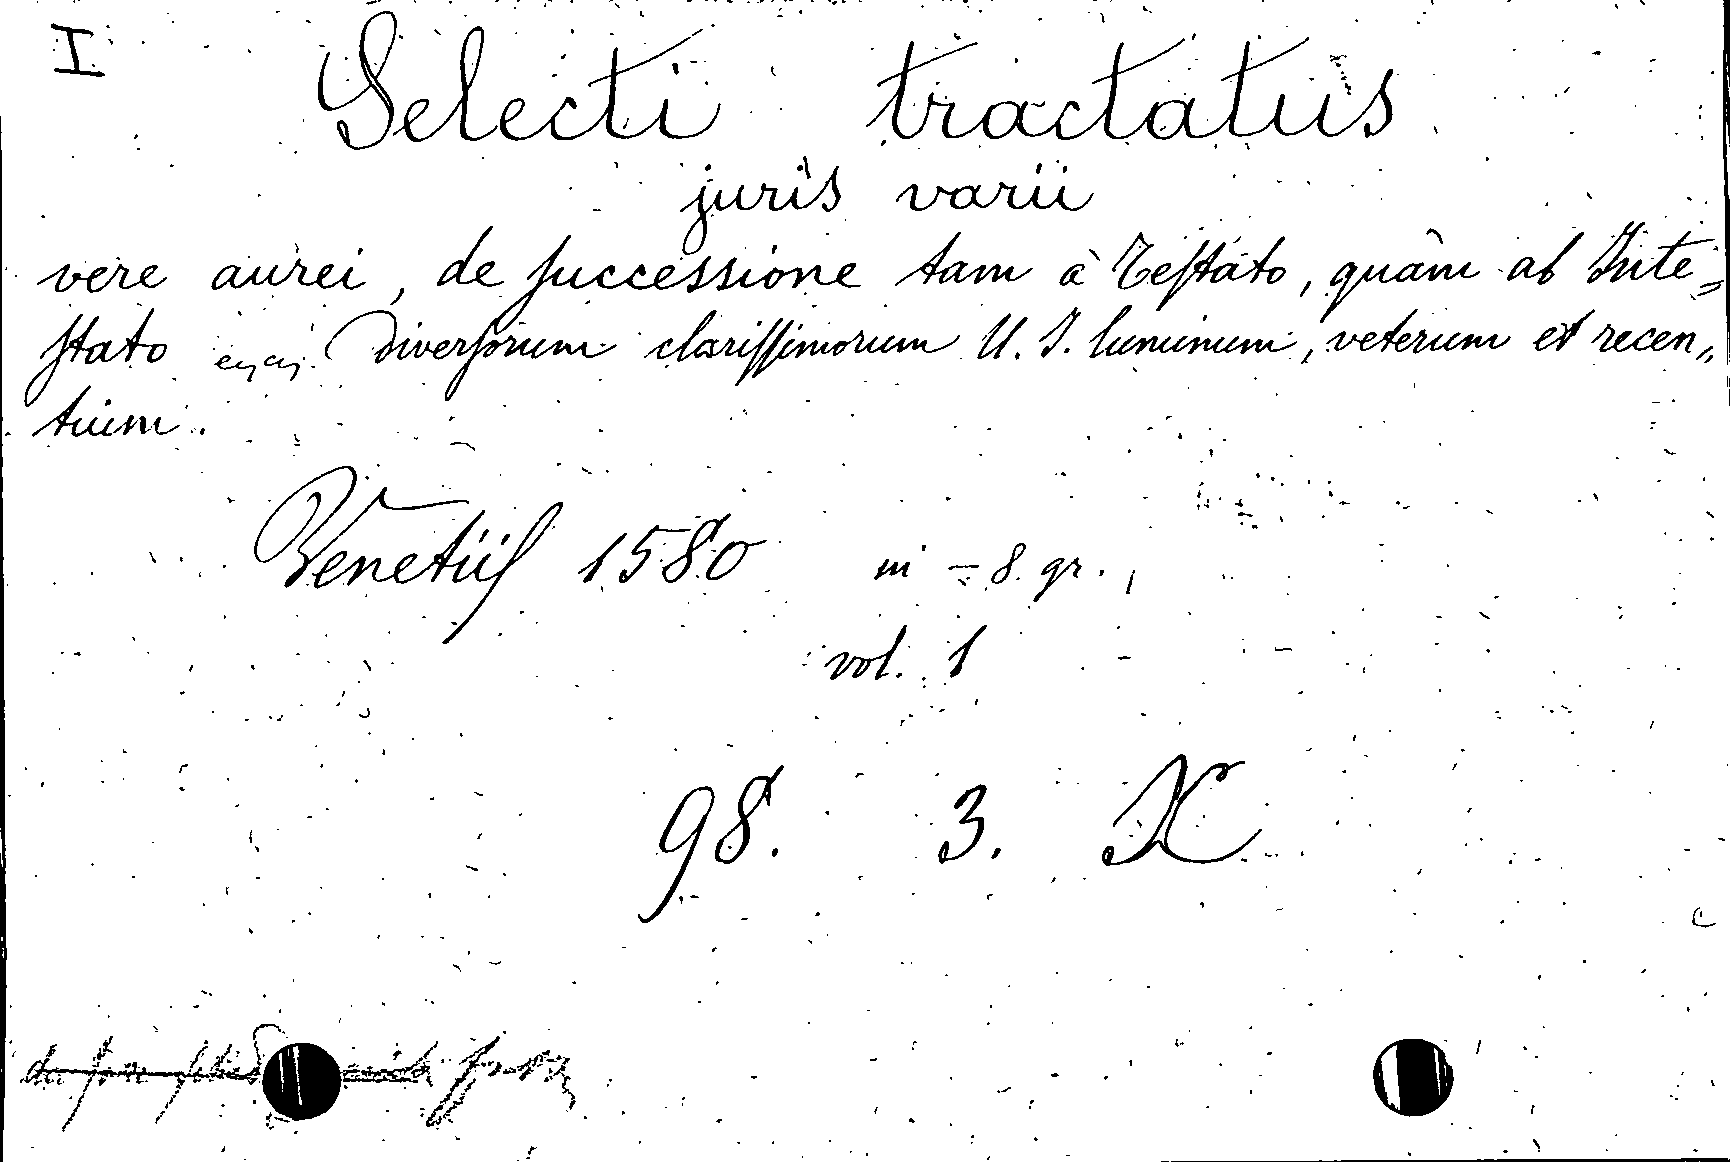 I
Selecti tractatus
juris varii
vere aurei, de successione tam à Testato, quàm ab Inte=
stato Diversorum clarissimorum U. J. luminum, veterum et recen„
tium.
Venetiis 1580 in - 8. gr.,
vol. 1
98. 3. X